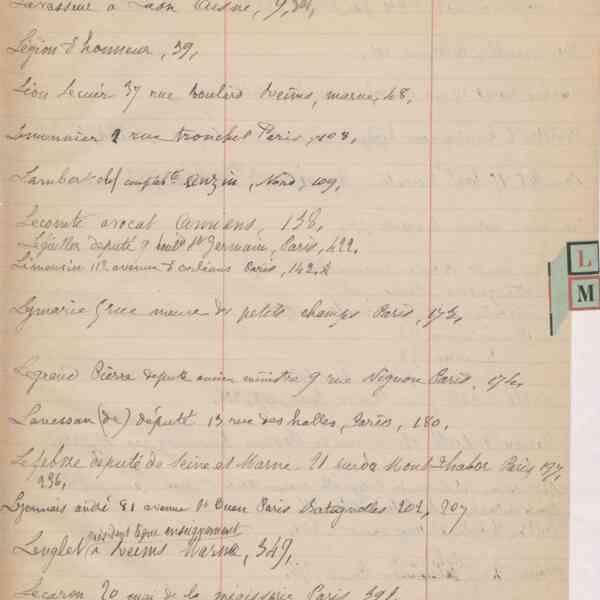 Levasseur à Laon Aisne, 9,
Légion d'honneur, 39,
Léon Lecuir 37 rue boulers Reims, marne, 48,
Limonnier 2 rue tronchet Paris, 108,
Lambert chef comptable anzin, Nord 109,
Lecomte avocat Amiens, 138,
Léguiller député 9 boulrd St Germain, Paris, 422,
Limousin 112 avenue d'orléans Paris, 142,
Lymarie 5 rue neuve des petits champs Paris, 174,
Legrand Pierre député ancien ministre 9 rue Vignon Paris, 174,
Lanessan (de) député 13 rue des halles, Paris, 180,
Lefebvre député de Seine et Marne 21 rue du Mont-thabor Paris 197,
236,
Lyonnais andré 81 avenue St Ouen Paris Batignolles 202, 207
président ligue enseignement
Lenglet à Reims Marne, 349,
Lecaron 20 quai de la mégisserie Paris 398,
L
M